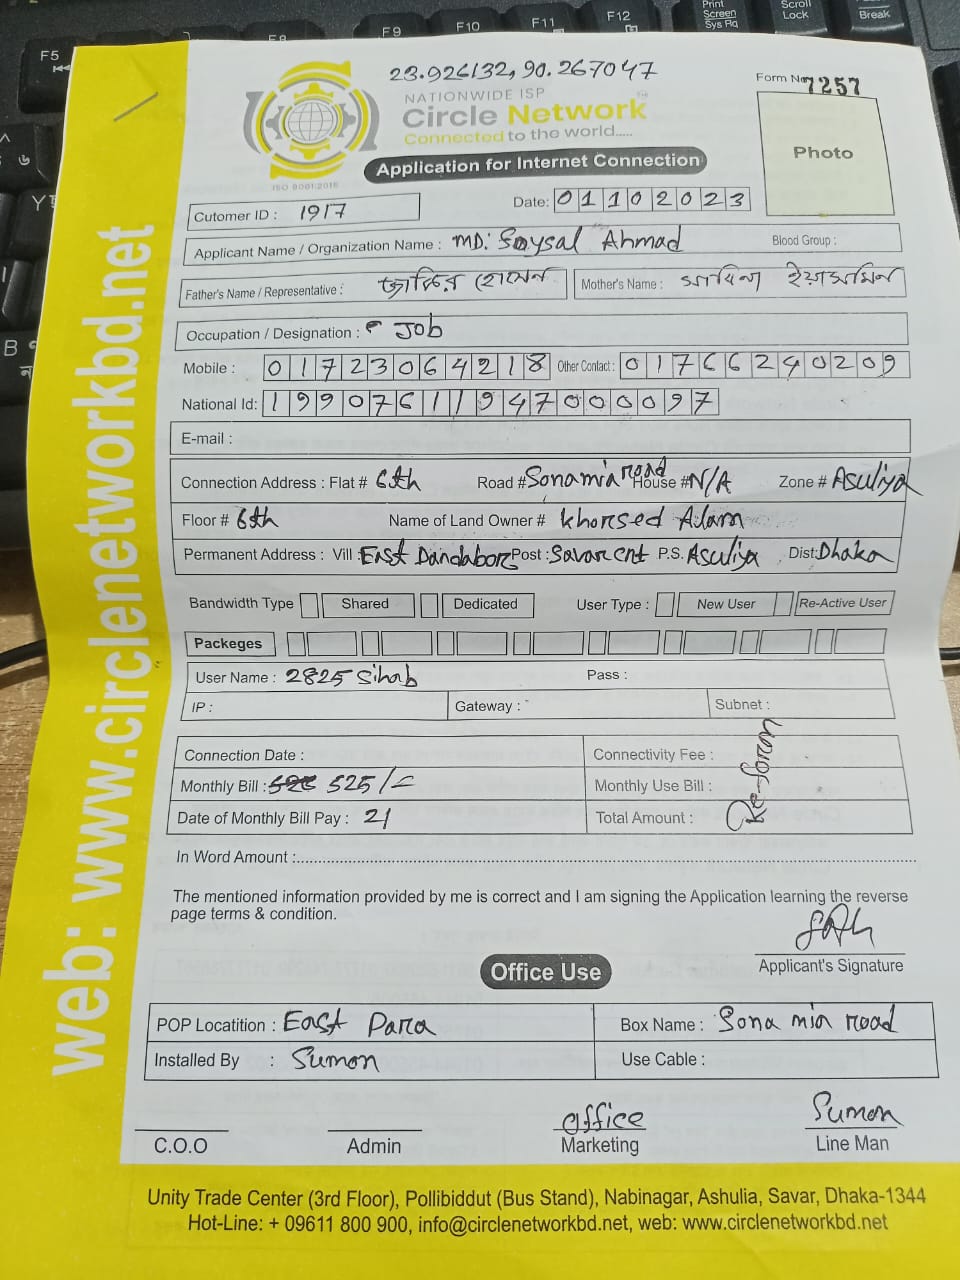 F5 F8 F9 F10 F11 F12 Print Screen Sys Rq Scroll Lock Break
23.926132, 90.267047
Form No 7257
NATIONWIDE ISP
Circle Network
Connected to the world.....
ISO 9001:2015
Application for Internet Connection
Photo
Cutomer ID : 1917
Date: 01102023
Applicant Name / Organization Name : MD: Saysal Ahmad Blood Group :
Father's Name / Representative : জাকির হোসেন Mother's Name : সাবিনা ইয়াসমিন
Occupation / Designation : Job
Mobile : 01723064218 Other Contact : 01766240209
National Id: 19907611947000097
E-mail :
Connection Address : Flat # 6th Road # Sonamia road House # N/A Zone # Asuliya
Floor # 6th Name of Land Owner # Khorsed Alam
Permanent Address : Vill : East Dandabor Post : Savar cnt P.S. Asuliya Dist: Dhaka
Bandwidth Type Shared Dedicated User Type : New User Re-Active User
Packeges
User Name : 2825 Sihab Pass :
IP : Gateway : Subnet :
Connection Date : Connectivity Fee :
Monthly Bill : 525/= Monthly Use Bill :
Date of Monthly Bill Pay : 21 Total Amount :
Re-form
In Word Amount :
The mentioned information provided by me is correct and I am signing the Application learning the reverse
page terms & condition.
Applicant's Signature
Office Use
POP Locatition : East Para Box Name : Sona mia road
Installed By : Sumon Use Cable :
office Sumon
C.O.O Admin Marketing Line Man
Unity Trade Center (3rd Floor), Pollibiddut (Bus Stand), Nabinagar, Ashulia, Savar, Dhaka-1344
Hot-Line: + 09611 800 900, info@circlenetworkbd.net, web: www.circlenetworkbd.net
web: www.circlenetworkbd.net